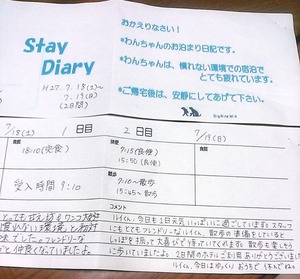 Stay
Diary
H27.7.18(土)~
7.19(日)
(2日間)
おかえりなさい!
*わんちゃんのお泊まり日記です。
*わんちゃんは、慣れない環境での宿泊で
とても疲れています。
*ご帰宅後は、安静にしてあげて下さい。
7/18(土)
1 日目
2 日目
7/19(日)
18:10(完食)
9:15(良便)
15:50(良便)
受入時間 9:10
9:10~散歩
15:45~散歩
コメント
ルイくん、今日も1日元気いっぱいに過ごしています。スタッフ
にもとてもフレンドリーなルイくん、散歩の準備をしていると
しっぽを振って大喜びで待っていてくれます。散歩も楽しそう
に歩いていましたよ。2日間のホテルご利用ありがとうございました。
ルイくん、今日はゆっくりおうちで休んでね